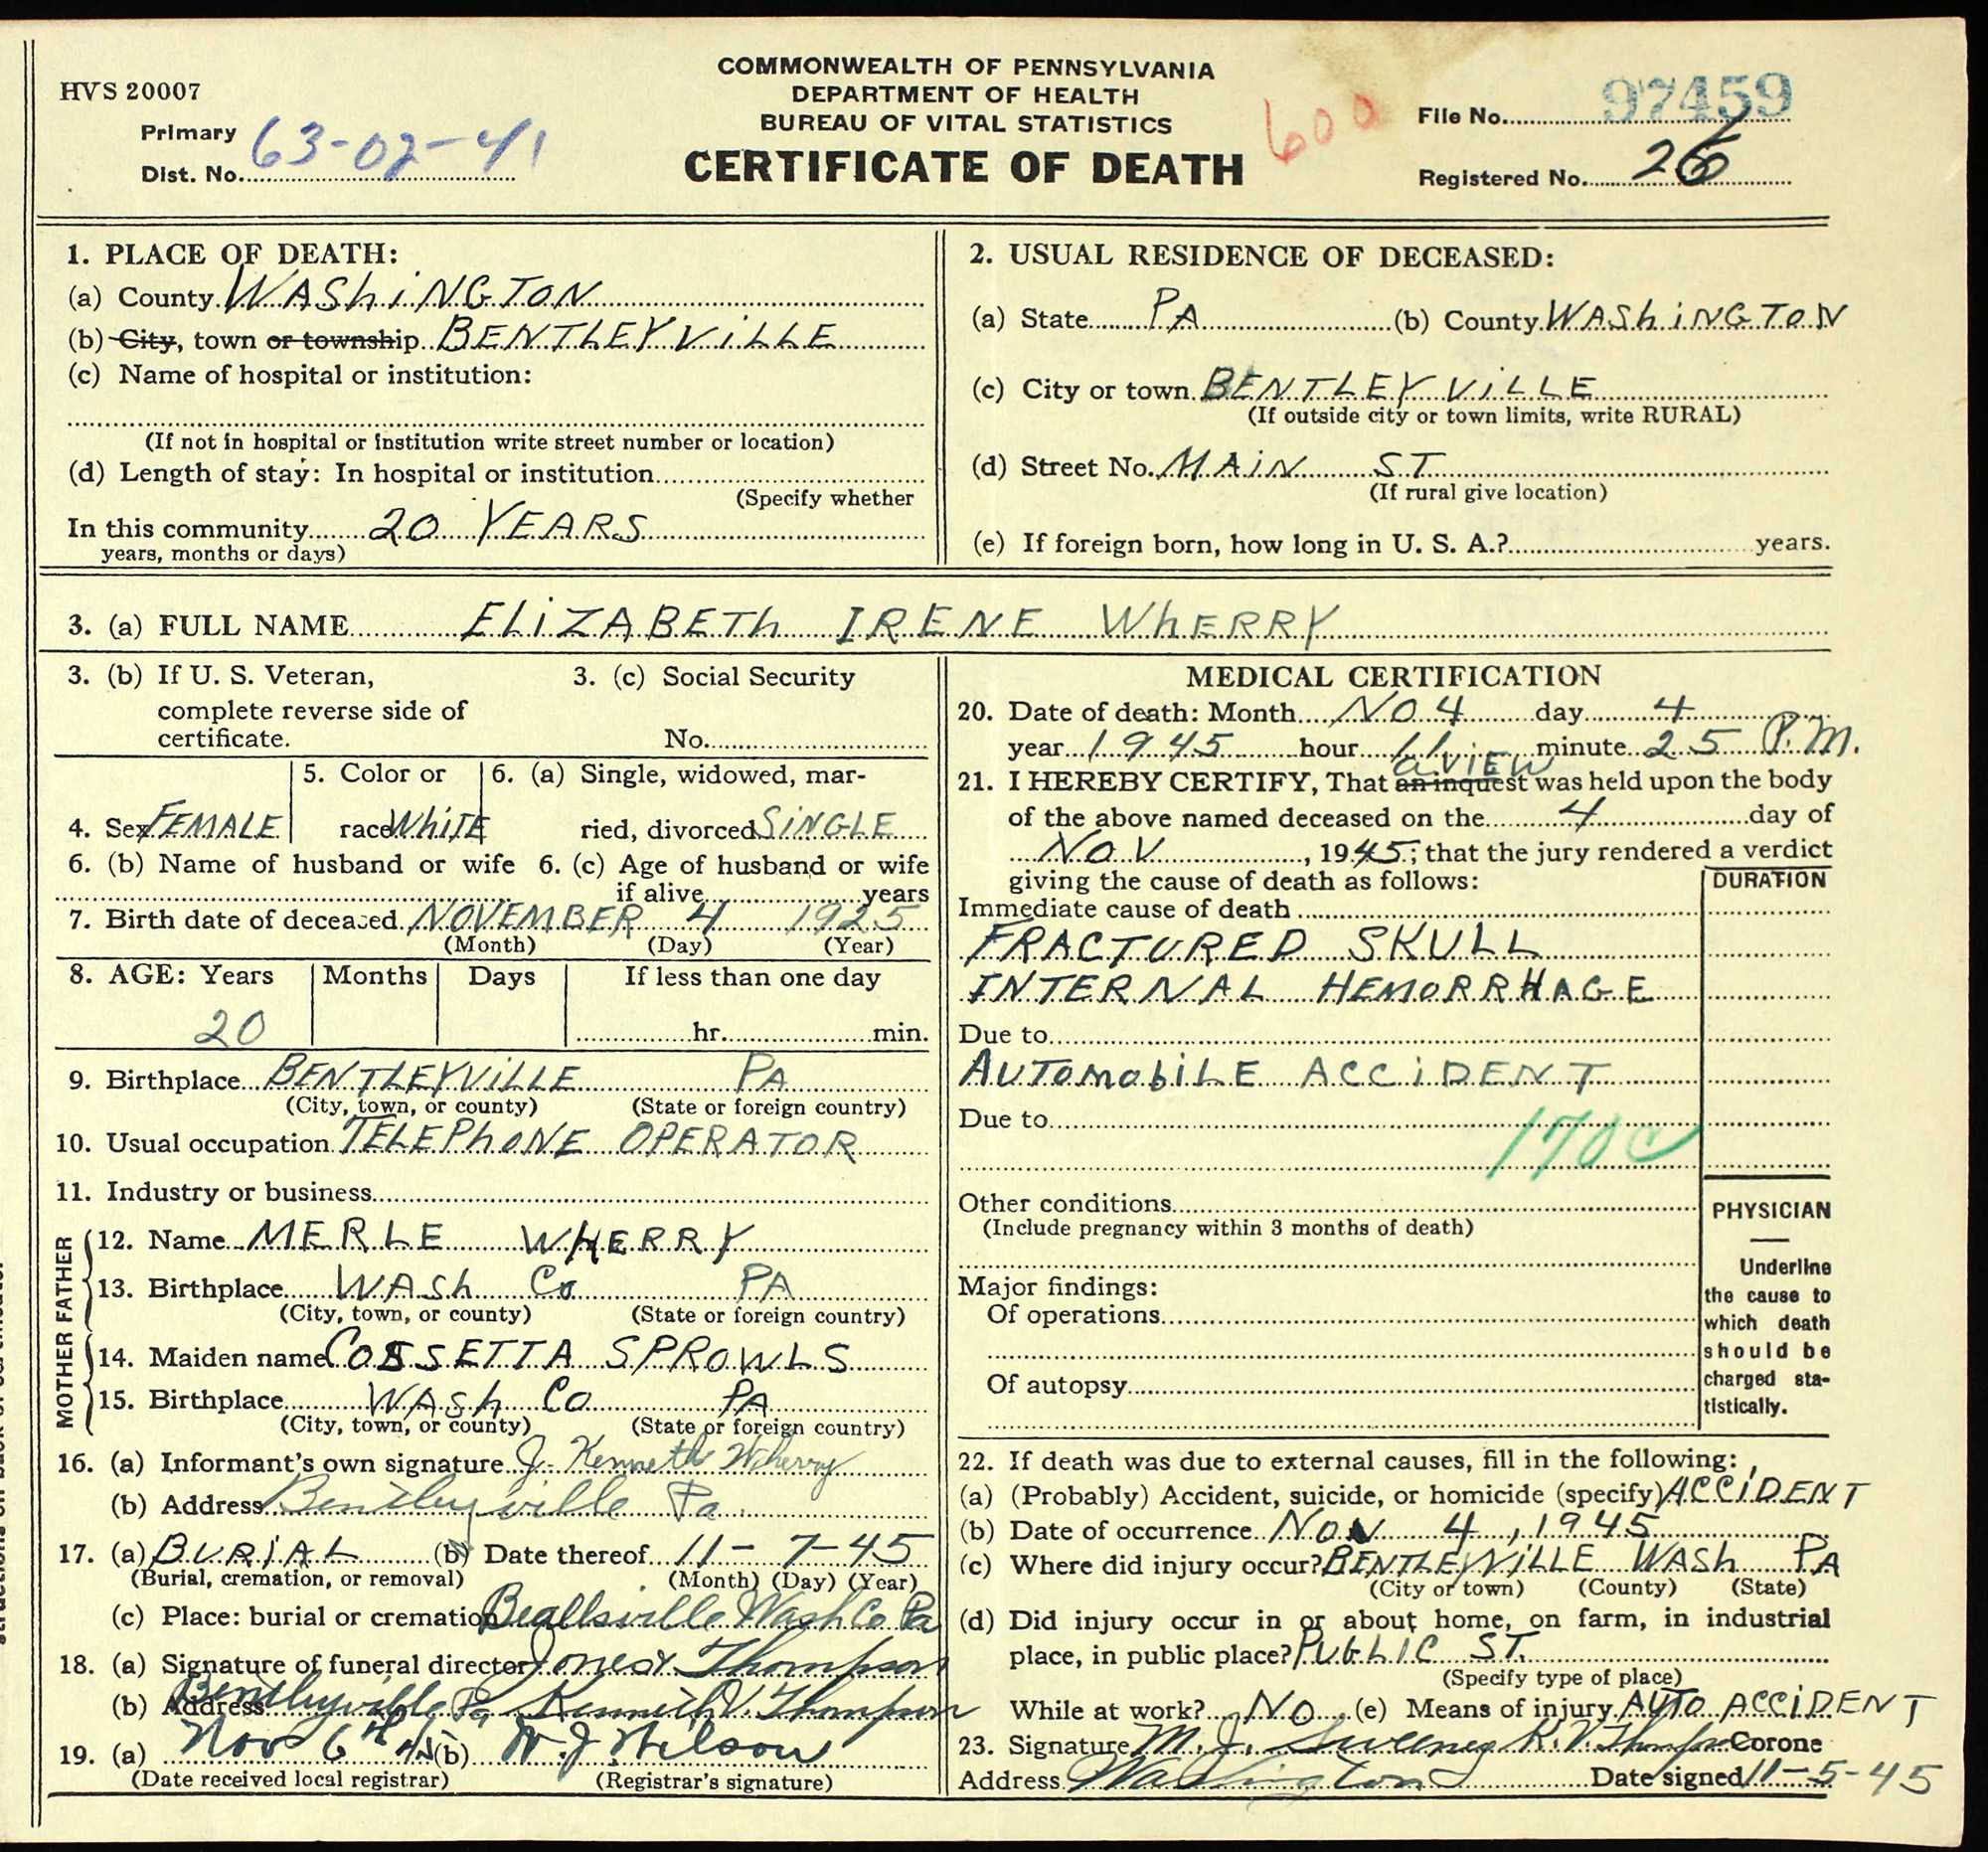 COMMONWEALTH OF PENNSYLVANIA
DEPARTMENT OF HEALTH
BUREAU OF VITAL STATISTICS
CERTIFICATE OF DEATH
HVS 20007
Primary
Dist. No. 63-02-41
600
File No. 97459
Registered No. 26
1. PLACE OF DEATH:
(a) County WAShiNGTON
(b) City, town or township BENTLEYViLLE
(c) Name of hospital or institution:
(If not in hospital or institution write street number or location)
(d) Length of stay: In hospital or institution
(Specify whether
In this community 20 YEARS
years, months or days)
2. USUAL RESIDENCE OF DECEASED:
(a) State PA (b) County WAShiNGTON
(c) City or town BENTLEYViLLE
(If outside city or town limits, write RURAL)
(d) Street No. MAiN ST
(If rural give location)
(e) If foreign born, how long in U. S. A.? years.
3. (a) FULL NAME ELiZABETh IRENE WhERRY
3. (b) If U. S. Veteran, 3. (c) Social Security
complete reverse side of
certificate. No.
5. Color or 6. (a) Single, widowed, mar-
4. Sex FEMALE race WhiTE ried, divorced SiNGLE
6. (b) Name of husband or wife 6. (c) Age of husband or wife
if alive years
7. Birth date of deceased NOVEMBER 4 1925
(Month) (Day) (Year)
8. AGE: Years Months Days If less than one day
20 hr. min.
9. Birthplace BENTLEYViLLE PA
(City, town, or county) (State or foreign country)
10. Usual occupation TELEPhONE OPERATOR
11. Industry or business
FATHER
12. Name MERLE WHERRY
13. Birthplace WASh Co PA
(City, town, or county) (State or foreign country)
MOTHER
14. Maiden name COSSETTA SPROWLS
15. Birthplace WASh Co PA
(City, town, or county) (State or foreign country)
16. (a) Informant's own signature J. Kenneth Wherry
(b) Address Bentleyville Pa.
17. (a) BURiAL (b) Date thereof 11-7-45
(Burial, cremation, or removal) (Month) (Day) (Year)
(c) Place: burial or cremation Beallsville Wash Co Pa
18. (a) Signature of funeral director Jones & Thompson
(b) Address Bentleyville Pa Kenneth V. Thompson
19. (a) Nov 6th 45 (b) W. J. Wilson
(Date received local registrar) (Registrar's signature)
MEDICAL CERTIFICATION
20. Date of death: Month NO4 day 4
year 1945 hour 11 minute 25 P.M.
a ViEW
21. I HEREBY CERTIFY, That an inquest was held upon the body
of the above named deceased on the 4 day of
NOV, 1945; that the jury rendered a verdict
giving the cause of death as follows: DURATION
Immediate cause of death
FRACTURED SKULL
INTERNAL HEMORRHAGE
Due to
AUTOmobiLE ACCiDENT
Due to
170c
Other conditions
(Include pregnancy within 3 months of death)
Major findings:
Of operations
Of autopsy
PHYSICIAN
Underline
the cause to
which death
should be
charged sta-
tistically.
22. If death was due to external causes, fill in the following:
(a) (Probably) Accident, suicide, or homicide (specify) ACCiDENT
(b) Date of occurrence NOV 4, 1945
(c) Where did injury occur? BENTLEYViLLE WASh PA
(City or town) (County) (State)
(d) Did injury occur in or about home, on farm, in industrial
place, in public place? PUbLIC ST.
(Specify type of place)
While at work? NO (e) Means of injury AUTO ACCiDENT
23. Signature M. J. Sweeney K. V. Thompson Corone
Address Washington Date signed 11-5-45